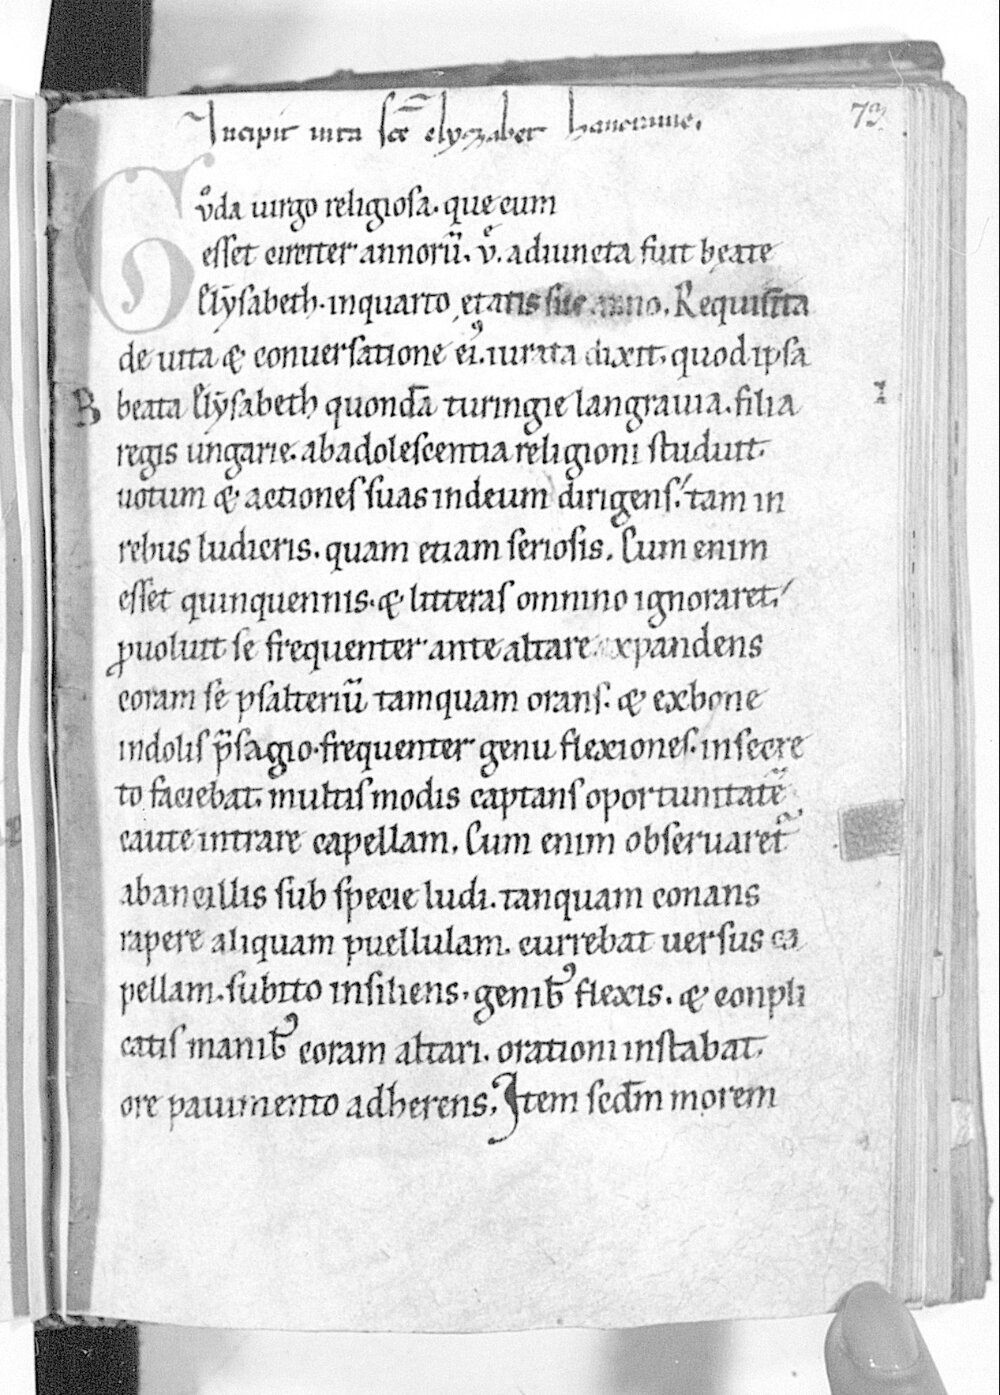 Incipit uita sc̄e elyzabet
73
Gůda uirgo religiosa. que cum
esset circiter annorū. v̊. adiuncta fuit beate
Elẏsabeth. in quarto etatis sue anno. Requisita
de uita & conuersatione ei᾿. iurata dixit. quod ipsa
B beata Elẏsabeth quondā turingie langrauia. filia 1
regis ungarie. ab adolescentia religioni studuit.
uotum & actiones suas in deum dirigens. tam in
rebus ludicris. quam etiam seriosis. Cum enim
esset quinquennis. & litteras omnino ignoraret.
ꝓuoluit se frequenter ante altare expandens
coram se psalteriū tamquam orans. & ex bone
indolis p̄sagio. frequenter genu flexiones. in secre
to faciebat. multis modis captans oportunitatē
caute intrare capellam. Cum enim obseruaret᷑
ab ancillis sub specie ludi. tanquam conans
rapere aliquam puellulam. currebat uersus ca
pellam. subito insiliens. genibꝰ flexis. & conpli
catis manibꝰ coram altari. orationi instabat.
ore pauimento adherens. Item secd̄m morem